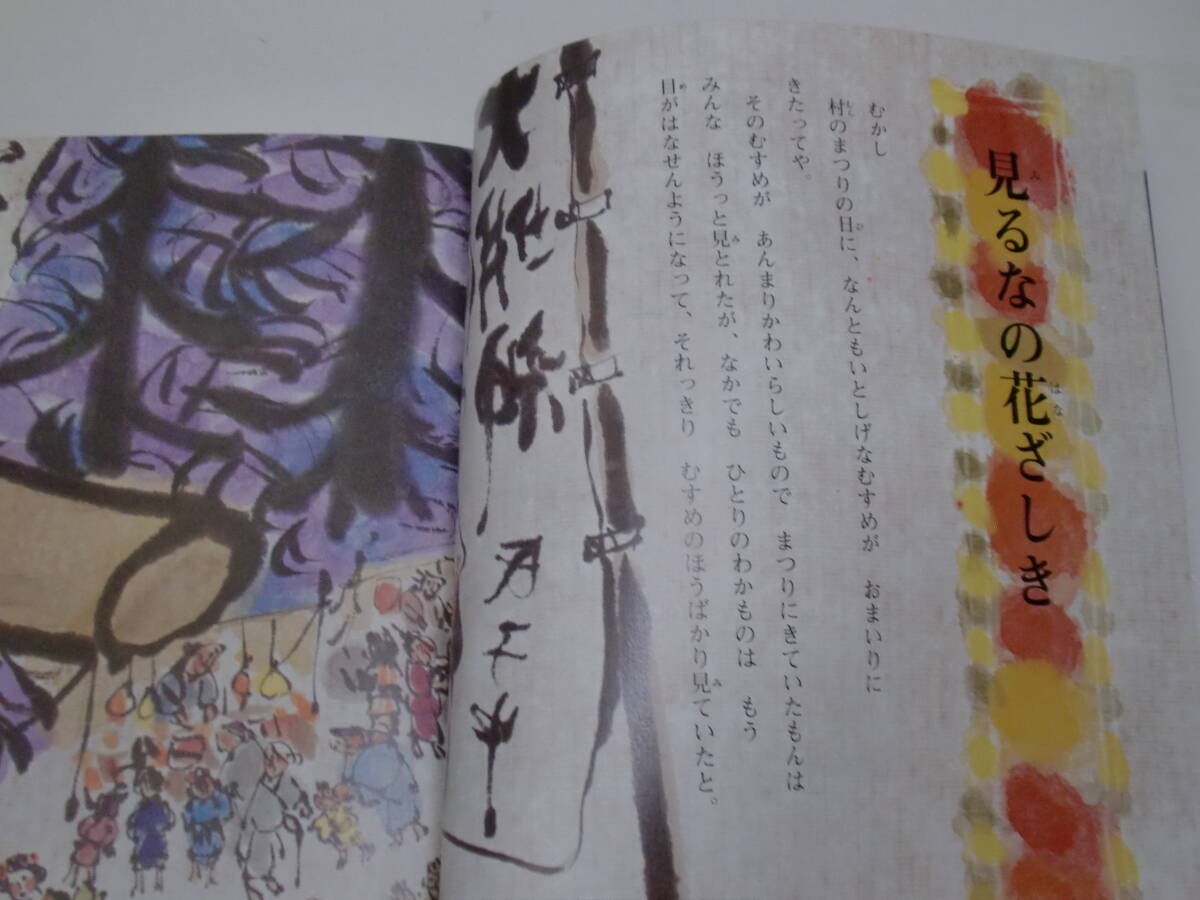 見るなの花ざしき
むかし
村のまつりの日に、なんともいとしげなむすめが　おまいりに
きたってや。
そのむすめが　あんまりかわいらしいもので　まつりにきていたもんは
みんな　ほうっと見とれたが、なかでも　ひとりのわかものは　もう
目がはなせんようになって、それっきり　むすめのほうばかり見ていたと。